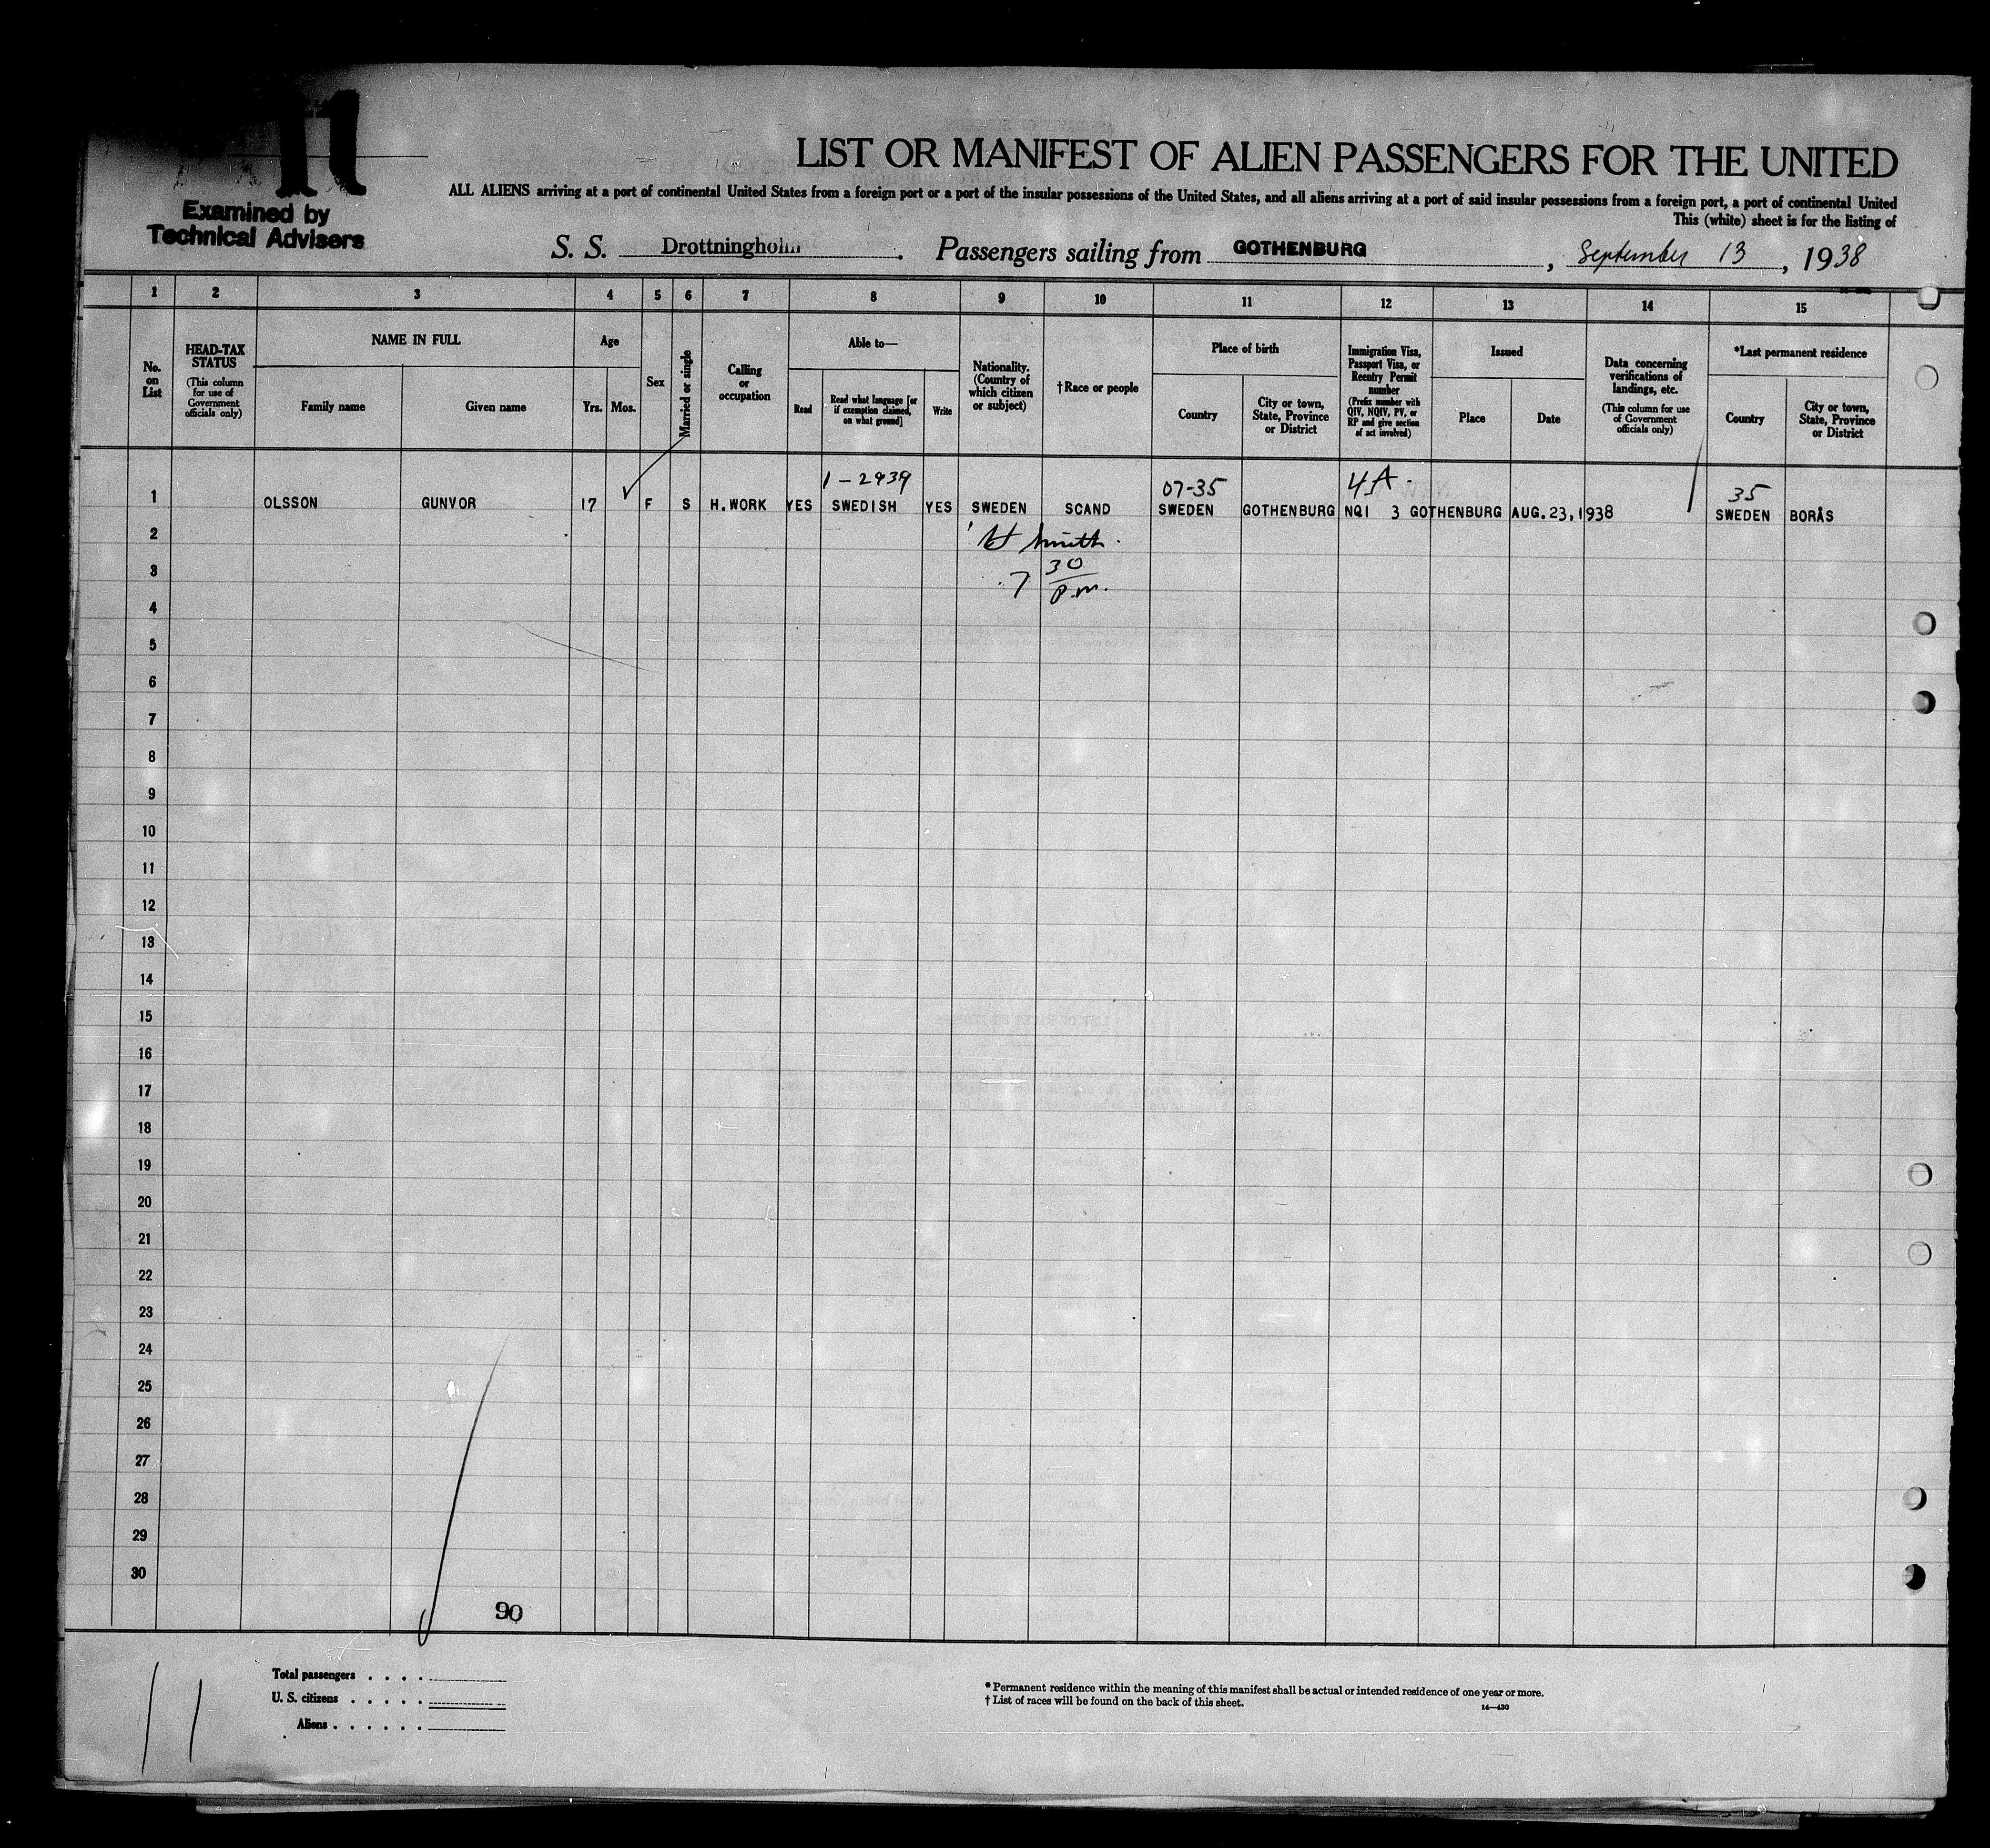 11
LIST OR MANIFEST OF ALIEN PASSENGERS FOR THE UNITED
ALL ALIENS arriving at a port of continental United States from a foreign port or a port of the insular possessions of the United States, and all aliens arriving at a port of said insular possessions from a foreign port, a port of continental United
This (white) sheet is for the listing of
Examined by
Technical Advisers
S. S. Drottningholm. Passengers sailing from GOTHENBURG, September 13, 1938
1 2 3 4 5 6 7 8 9 10 11 12 13 14 15
No. on List
HEAD-TAX STATUS (This column for use of Government officials only)
NAME IN FULL
Family name Given name
Age
Yrs. Mos.
Sex
Married or single
Calling or occupation
Able to—
Read
Read what language [or if exemption claimed, on what ground]
Write
Nationality. (Country of which citizen or subject)
†Race or people
Place of birth
Country
City or town, State, Province or District
Immigration Visa, Passport Visa, or Reentry Permit number (Prefix number with QIV, NQIV, PV, or RP and give section of act involved)
Issued
Place Date
Data concerning verifications of landings, etc. (This column for use of Government officials only)
*Last permanent residence
Country
City or town, State, Province or District
1-2939 07-35 4A. 35
1 OLSSON GUNVOR 17 F S H.WORK YES SWEDISH YES SWEDEN SCAND SWEDEN GOTHENBURG NQI 3 GOTHENBURG AUG.23,1938 SWEDEN BORÅS
2 Smith
3 7 30 p.m.
4
5
6
7
8
9
10
11
12
13
14
15
16
17
18
19
20
21
22
23
24
25
26
27
28
29
30
90
11
Total passengers . . . .
U. S. citizens . . . . .
Aliens . . . . . .
* Permanent residence within the meaning of this manifest shall be actual or intended residence of one year or more.
† List of races will be found on the back of this sheet.
14—430